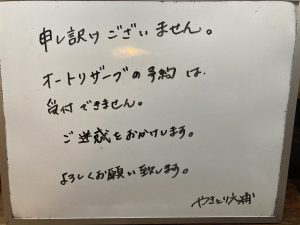 申し訳けございません。
オートリザーブの予約は、
受付できません。
ご迷惑をおかけします。
よろしくお願い致します。
やきとり大浦